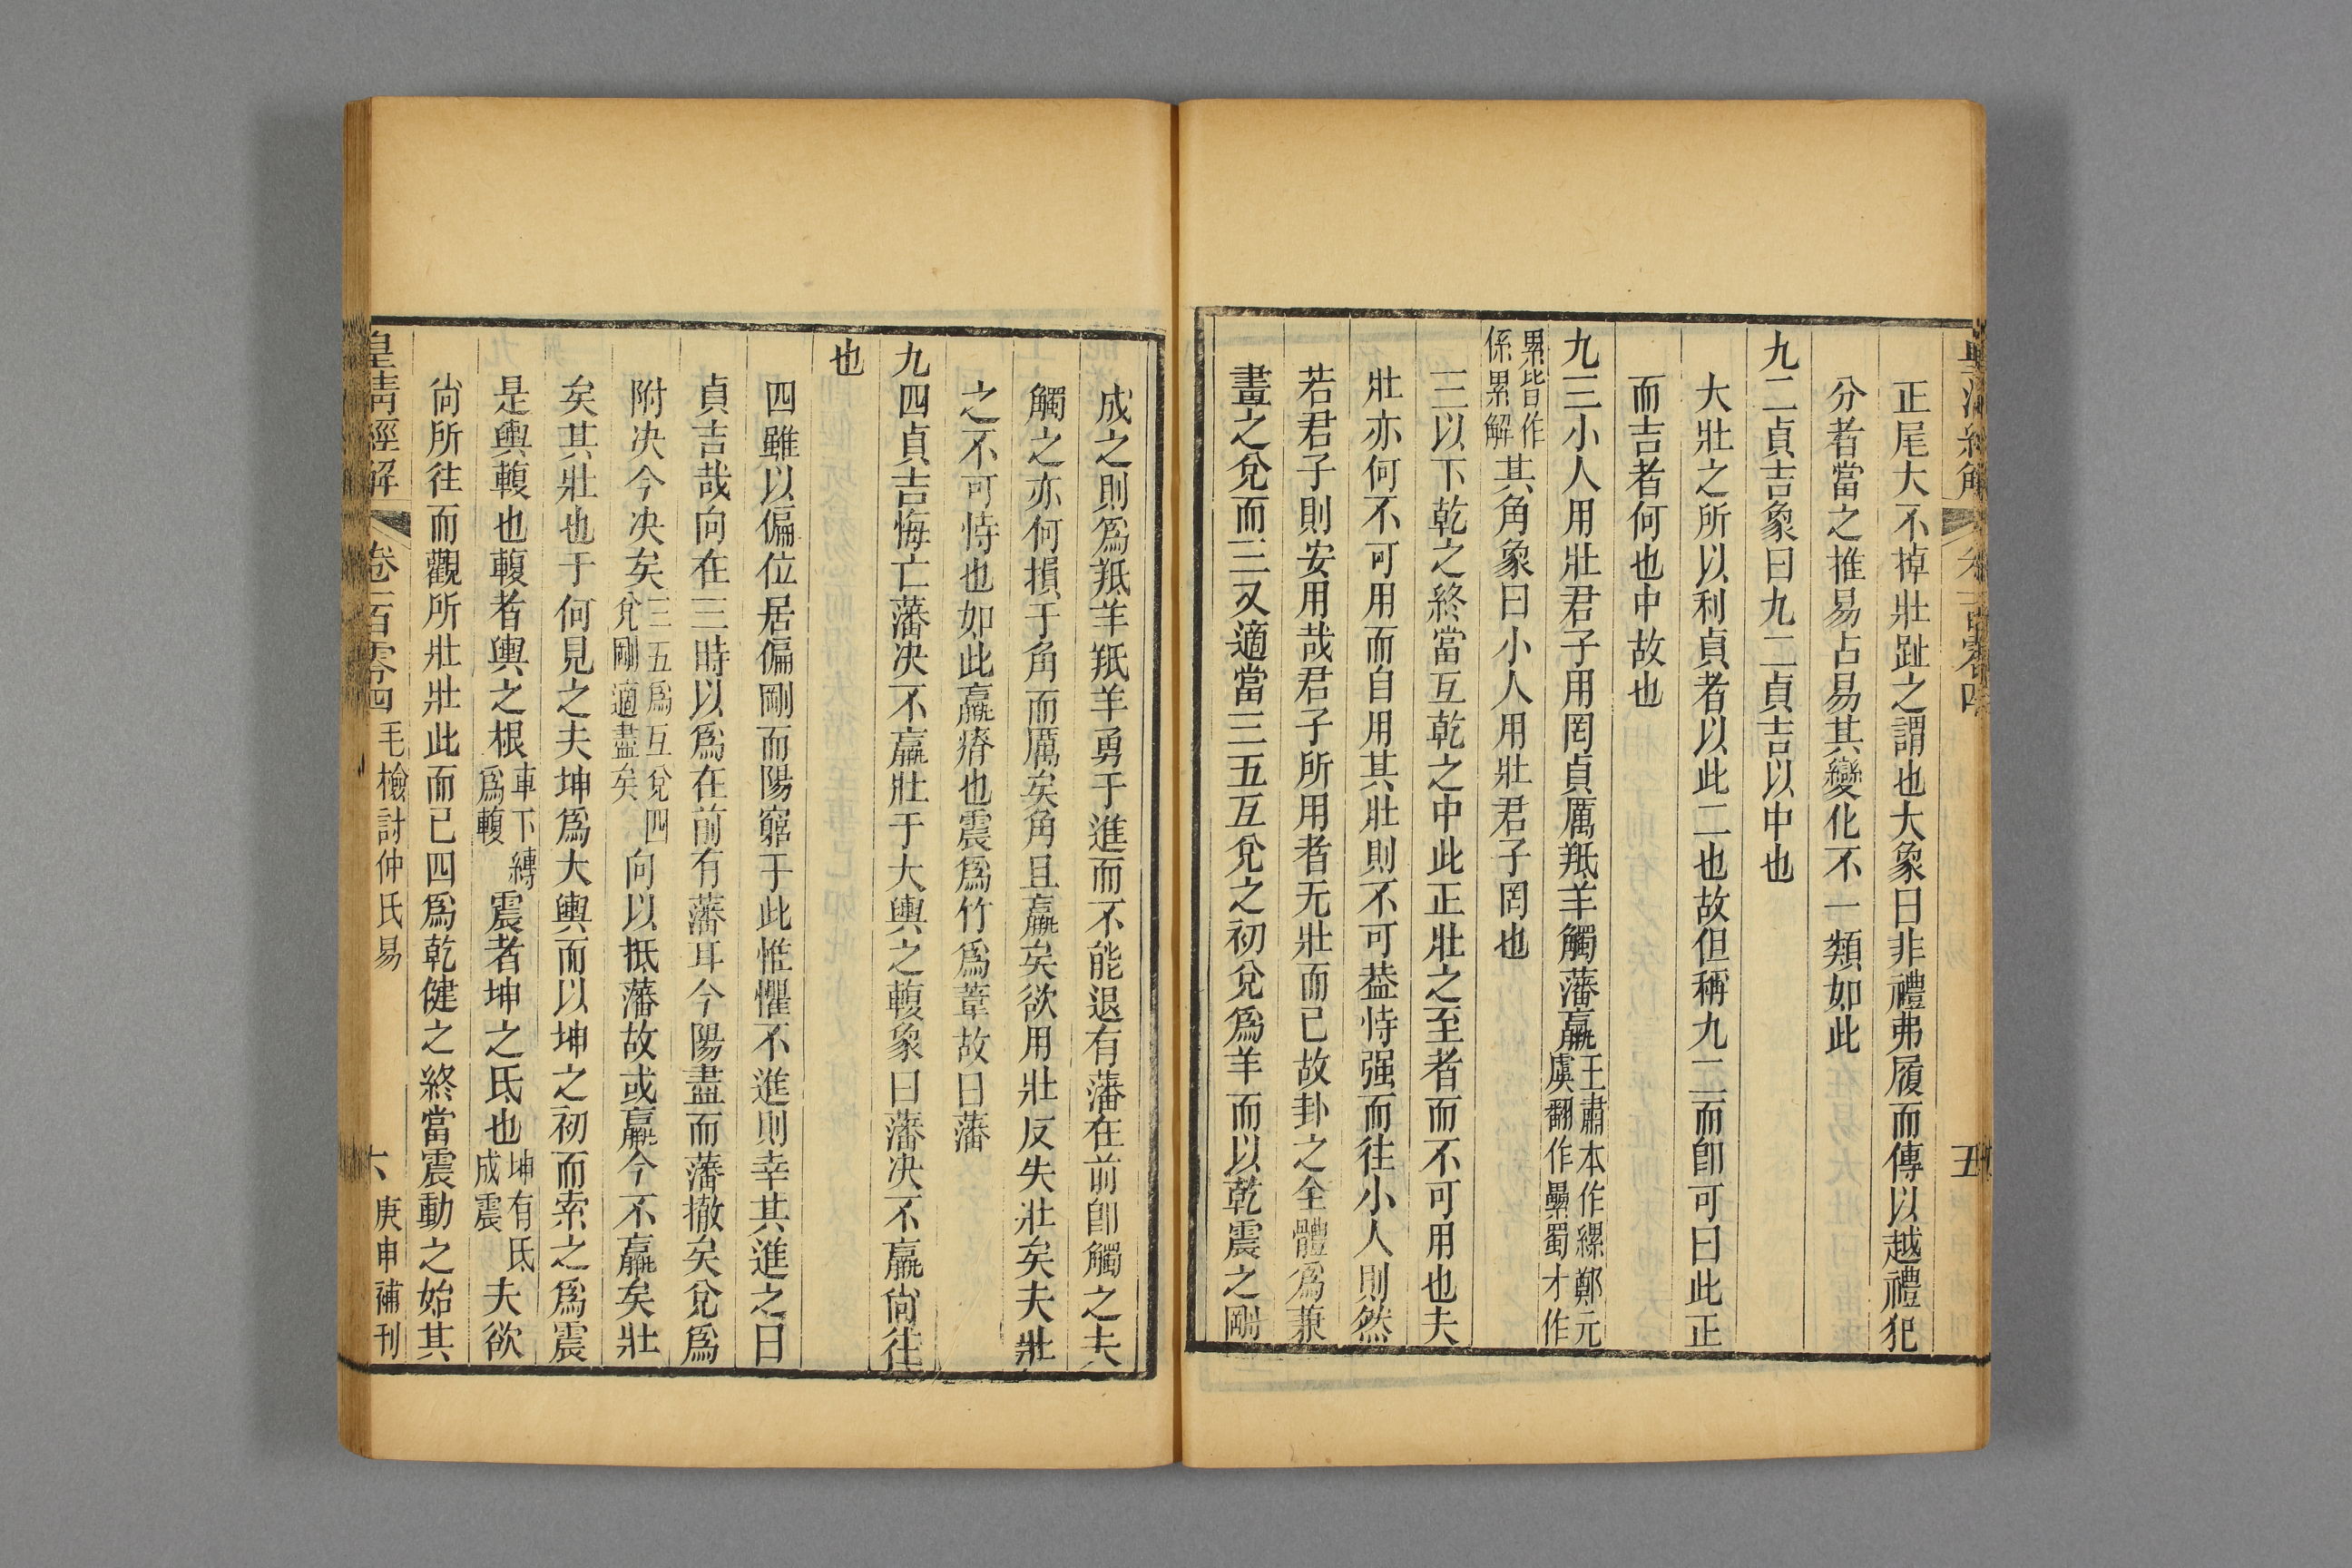 皇清經解
卷一百零四
五
正尾大不掉壯趾之謂也大象曰非禮弗履而傳以越禮犯
分者當之推易占易其變化不一類如此
九二貞吉象曰九二貞吉以中也
大壯之所以利貞者以此二也故但稱九二而卽可曰此正
而吉者何也中故也
九三小人用壯君子用罔貞厲羝羊觸藩羸王肅本作縲鄭元虞翻作纍蜀才作
累皆作係累解其角象曰小人用壯君子罔也
三以下乾之終當互乾之中此正壯之至者而不可用也夫
壯亦何不可用而自用其壯則不可葢恃强而往小人則然
若君子則安用哉君子所用者无壯而已故卦之全體爲兼
畫之兌而三又適當三五互兌之初兌爲羊而以乾震之剛
成之則爲羝羊羝羊勇于進而不能退有藩在前卽觸之夫
觸之亦何損于角而厲矣角且羸矣欲用壯反失壯矣夫壯
之不可恃也如此羸瘠也震爲竹爲葦故曰藩
九四貞吉悔亡藩决不羸壯于大輿之輹象曰藩决不羸尙往
也
四雖以偏位居偏剛而陽窮于此惟懼不進則幸其進之日
貞吉哉向在三時以爲在前有藩耳今陽盡而藩撤矣兌爲
附决今决矣三五爲互兌四兌剛適盡矣向以抵藩故或羸今不羸矣壯
矣其壯也于何見之夫坤爲大輿而以坤之初而索之爲震
是輿輹也輹者輿之根車下縛爲輹震者坤之氐也坤有氐成震夫欲
尙所往而觀所壯壯此而已四爲乾健之終當震動之始其
皇清經解
卷一百零四
毛檢討仲氏易
六
庚申補刊